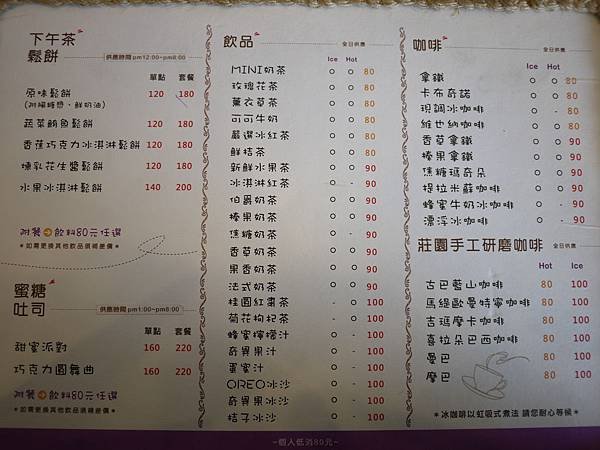 下午茶
鬆餅 供應時間pm12:00~pm8:00
單點 套餐
原味鬆餅 120 180
(附楓糖漿、鮮奶油)
蔬菜鮪魚鬆餅 120 180
香蕉巧克力冰淇淋鬆餅 120 180
煉乳花生醬鬆餅 120 180
水果冰淇淋鬆餅 140 200
附餐 飲料80元任選
*如需更換其他飲品須補差價*
蜜糖
吐司 供應時間pm1:00~pm8:00
單點 套餐
甜蜜派對 160 220
巧克力圓舞曲 160 220
附餐 飲料80元任選
*如需更換其他飲品須補差價*
飲品 全日供應
Ice Hot
MINI奶茶 ○ ○ 80
玫瑰花茶 ○ ○ 80
薰衣草茶 ○ ○ 80
可可牛奶 ○ ○ 80
嚴選冰紅茶 ○ ○ 80
鮮桔茶 ○ ○ 80
新鮮水果茶 ○ ○ 90
冰淇淋紅茶 ○ - 90
伯爵奶茶 ○ ○ 90
榛果奶茶 ○ ○ 90
焦糖奶茶 ○ - 90
香草奶茶 ○ ○ 90
果香奶茶 ○ ○ 90
法式奶茶 ○ ○ 90
桂圓紅棗茶 - ○ 100
菊花枸杞茶 - ○ 100
蜂蜜檸檬汁 ○ - 100
奇異果汁 ○ - 100
蛋蜜汁 ○ - 100
OREO冰沙 ○ - 100
奇異果冰沙 ○ - 100
桔子冰沙 ○ - 100
咖啡 全日供應
Ice Hot
拿鐵 ○ ○ 80
卡布奇諾 ○ ○ 80
現調冰咖啡 ○ - 80
維也納咖啡 ○ ○ 80
香草拿鐵 ○ ○ 90
榛果拿鐵 ○ ○ 90
焦糖瑪奇朵 ○ ○ 90
提拉米蘇咖啡 ○ ○ 90
蜂蜜牛奶冰咖啡 ○ - 90
漂浮冰咖啡 ○ - 90
莊園手工研磨咖啡 全日供應
Hot Ice
古巴藍山咖啡 80 100
馬緹歐曼特寧咖啡 80 100
吉瑪摩卡咖啡 80 100
喜拉朵巴西咖啡 80 100
曼巴 80 100
摩巴 80 100
*冰咖啡以虹吸式煮法 請您耐心等候*
~個人低消80元~